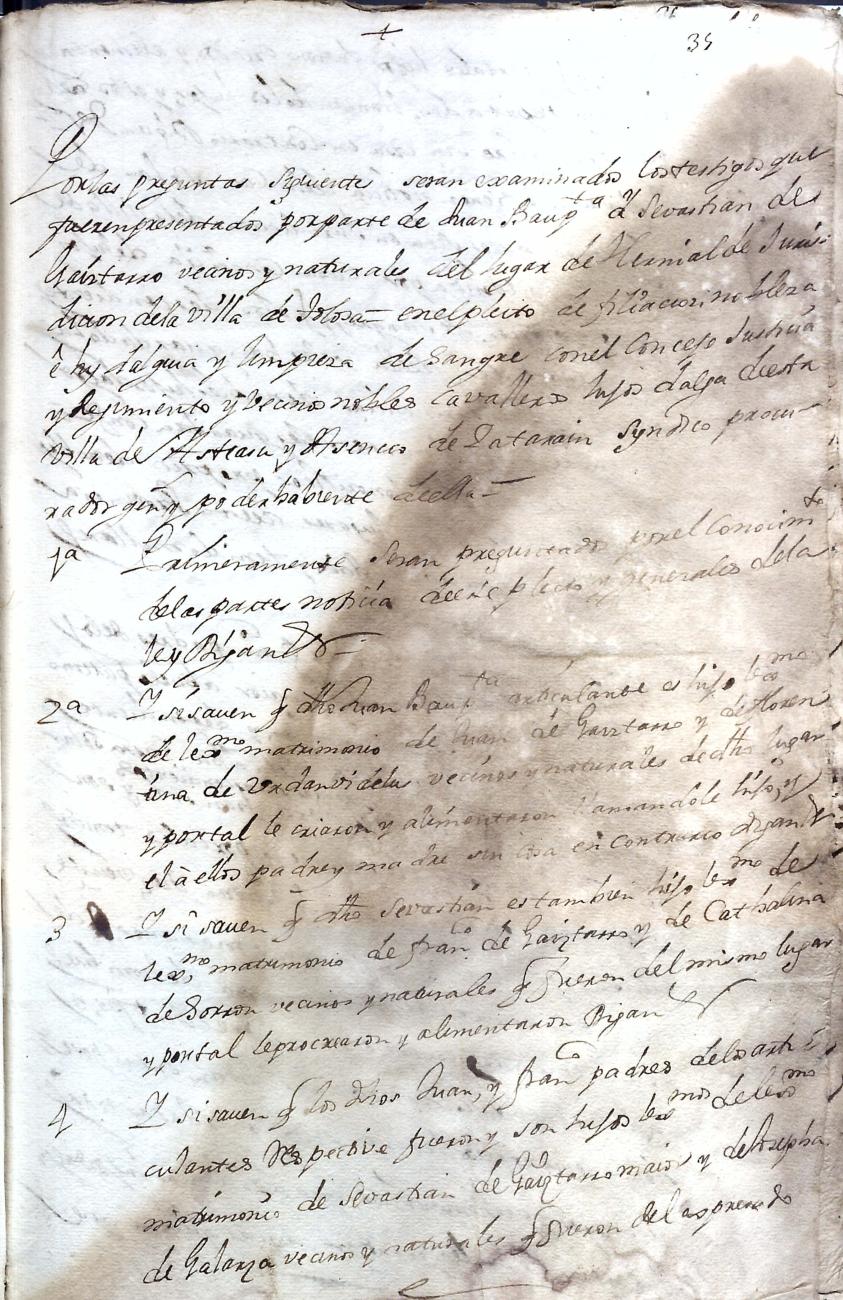 +
35
Por las preguntas siguiente seran examinados los testigos que
fueren presentados por parte de Juan Baupta y Sevastian de
Gaiztarro vecinos y naturales del lugar de Hernialde Juris-
dicion de la villa de Tolosa = en el pleito de filiacion nobleza
e hydalguia y limpieza de sangre con el Concejo Justicia
y Regimiento y vecinos nobles cavalleros hijos dalgo de esta
villa de Asteasu, y Asencio de Zatarain syndico procu-
rador genl y poder habiente de ella =
1a Primeramente seran preguntados por el conocimto
de las partes noticia de este pleito y generales de la
ley Digan
2a Y si saven q dho Juan Baupta articulante es hijo lexmo
de lexmo matrimonio de Juan de Gaiztarro y de Floren
tina de Urdanvidelus vecinos y naturales de dho lugar
y por tal le criaron y alimentaron llamandole hijo, y
el à ellos padre y madre sin cosa en contrario digan
3 Y si saven q dho Sevastian es tambien hijo lexmo de
lexmo matrimonio de franco de Gaiztarro y de Cathalina
de Sorron vecinos y naturales q fueron del mismo lugar
y por tal le procrearon y alimentaron Digan
4 Y si saven q los dhos Juan, y franco padres de los arti
culantes Respective fueron y son hijos lexmos de lexmo
matrimonio de Sevastian de Gaiztarro maior y de Josepha
de Galarza vecinos y naturales q fueron del expresado